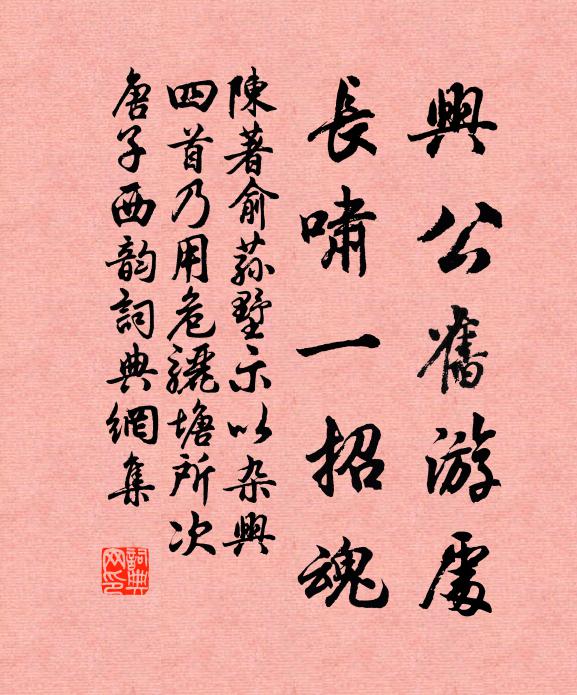 興公舊游處
長嘯一招魂
陳著俞蓀墅示以杂興
四首乃用危驪塘所次
唐子西韵詞典網集
詞典网印